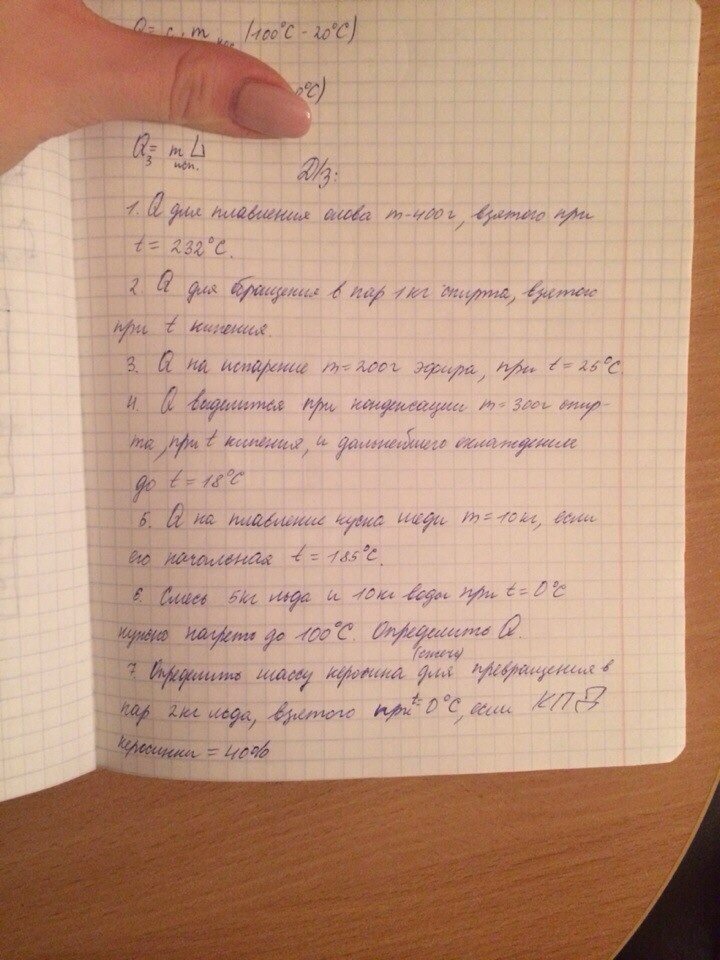 Q= c · m (100°C - 20°C)
0°C)
Q₃= m L
исп.
Д/з:
1. Q для плавления олова m-400г, взятого при
t = 232°C.
2. Q для обращения в пар 1кг спирта, взятого
при t кипения.
3. Q на испарение m=200г эфира, при t=25°C.
4. Q выделится при конденсации m=300г спир-
та, при t кипения, и дальнейшего охлаждения
до t = 18°C
5. Q на плавление куска меди m=10кг, если
его начальная t = 185°C.
6. Смесь 5кг льда и 10кг воды при t=0°C
нужно нагреть до 100°C. Определить Q.
(сжечь)
7. Определить массу керосина для превращения в
пар 2кг льда, взятого при t=0°C, если КПД
керосинки = 40%